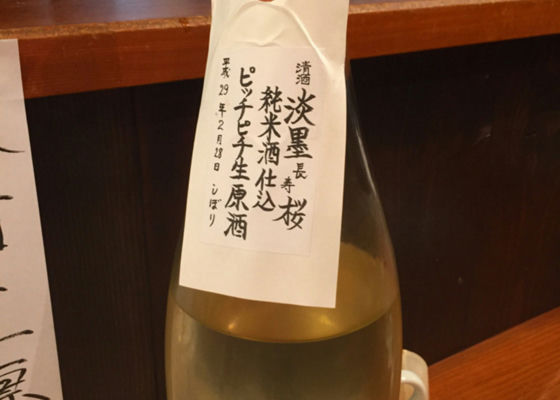 清酒
淡墨長寿桜
純米酒仕込
ピッチピチ生原酒
平成29年2月28日しぼり